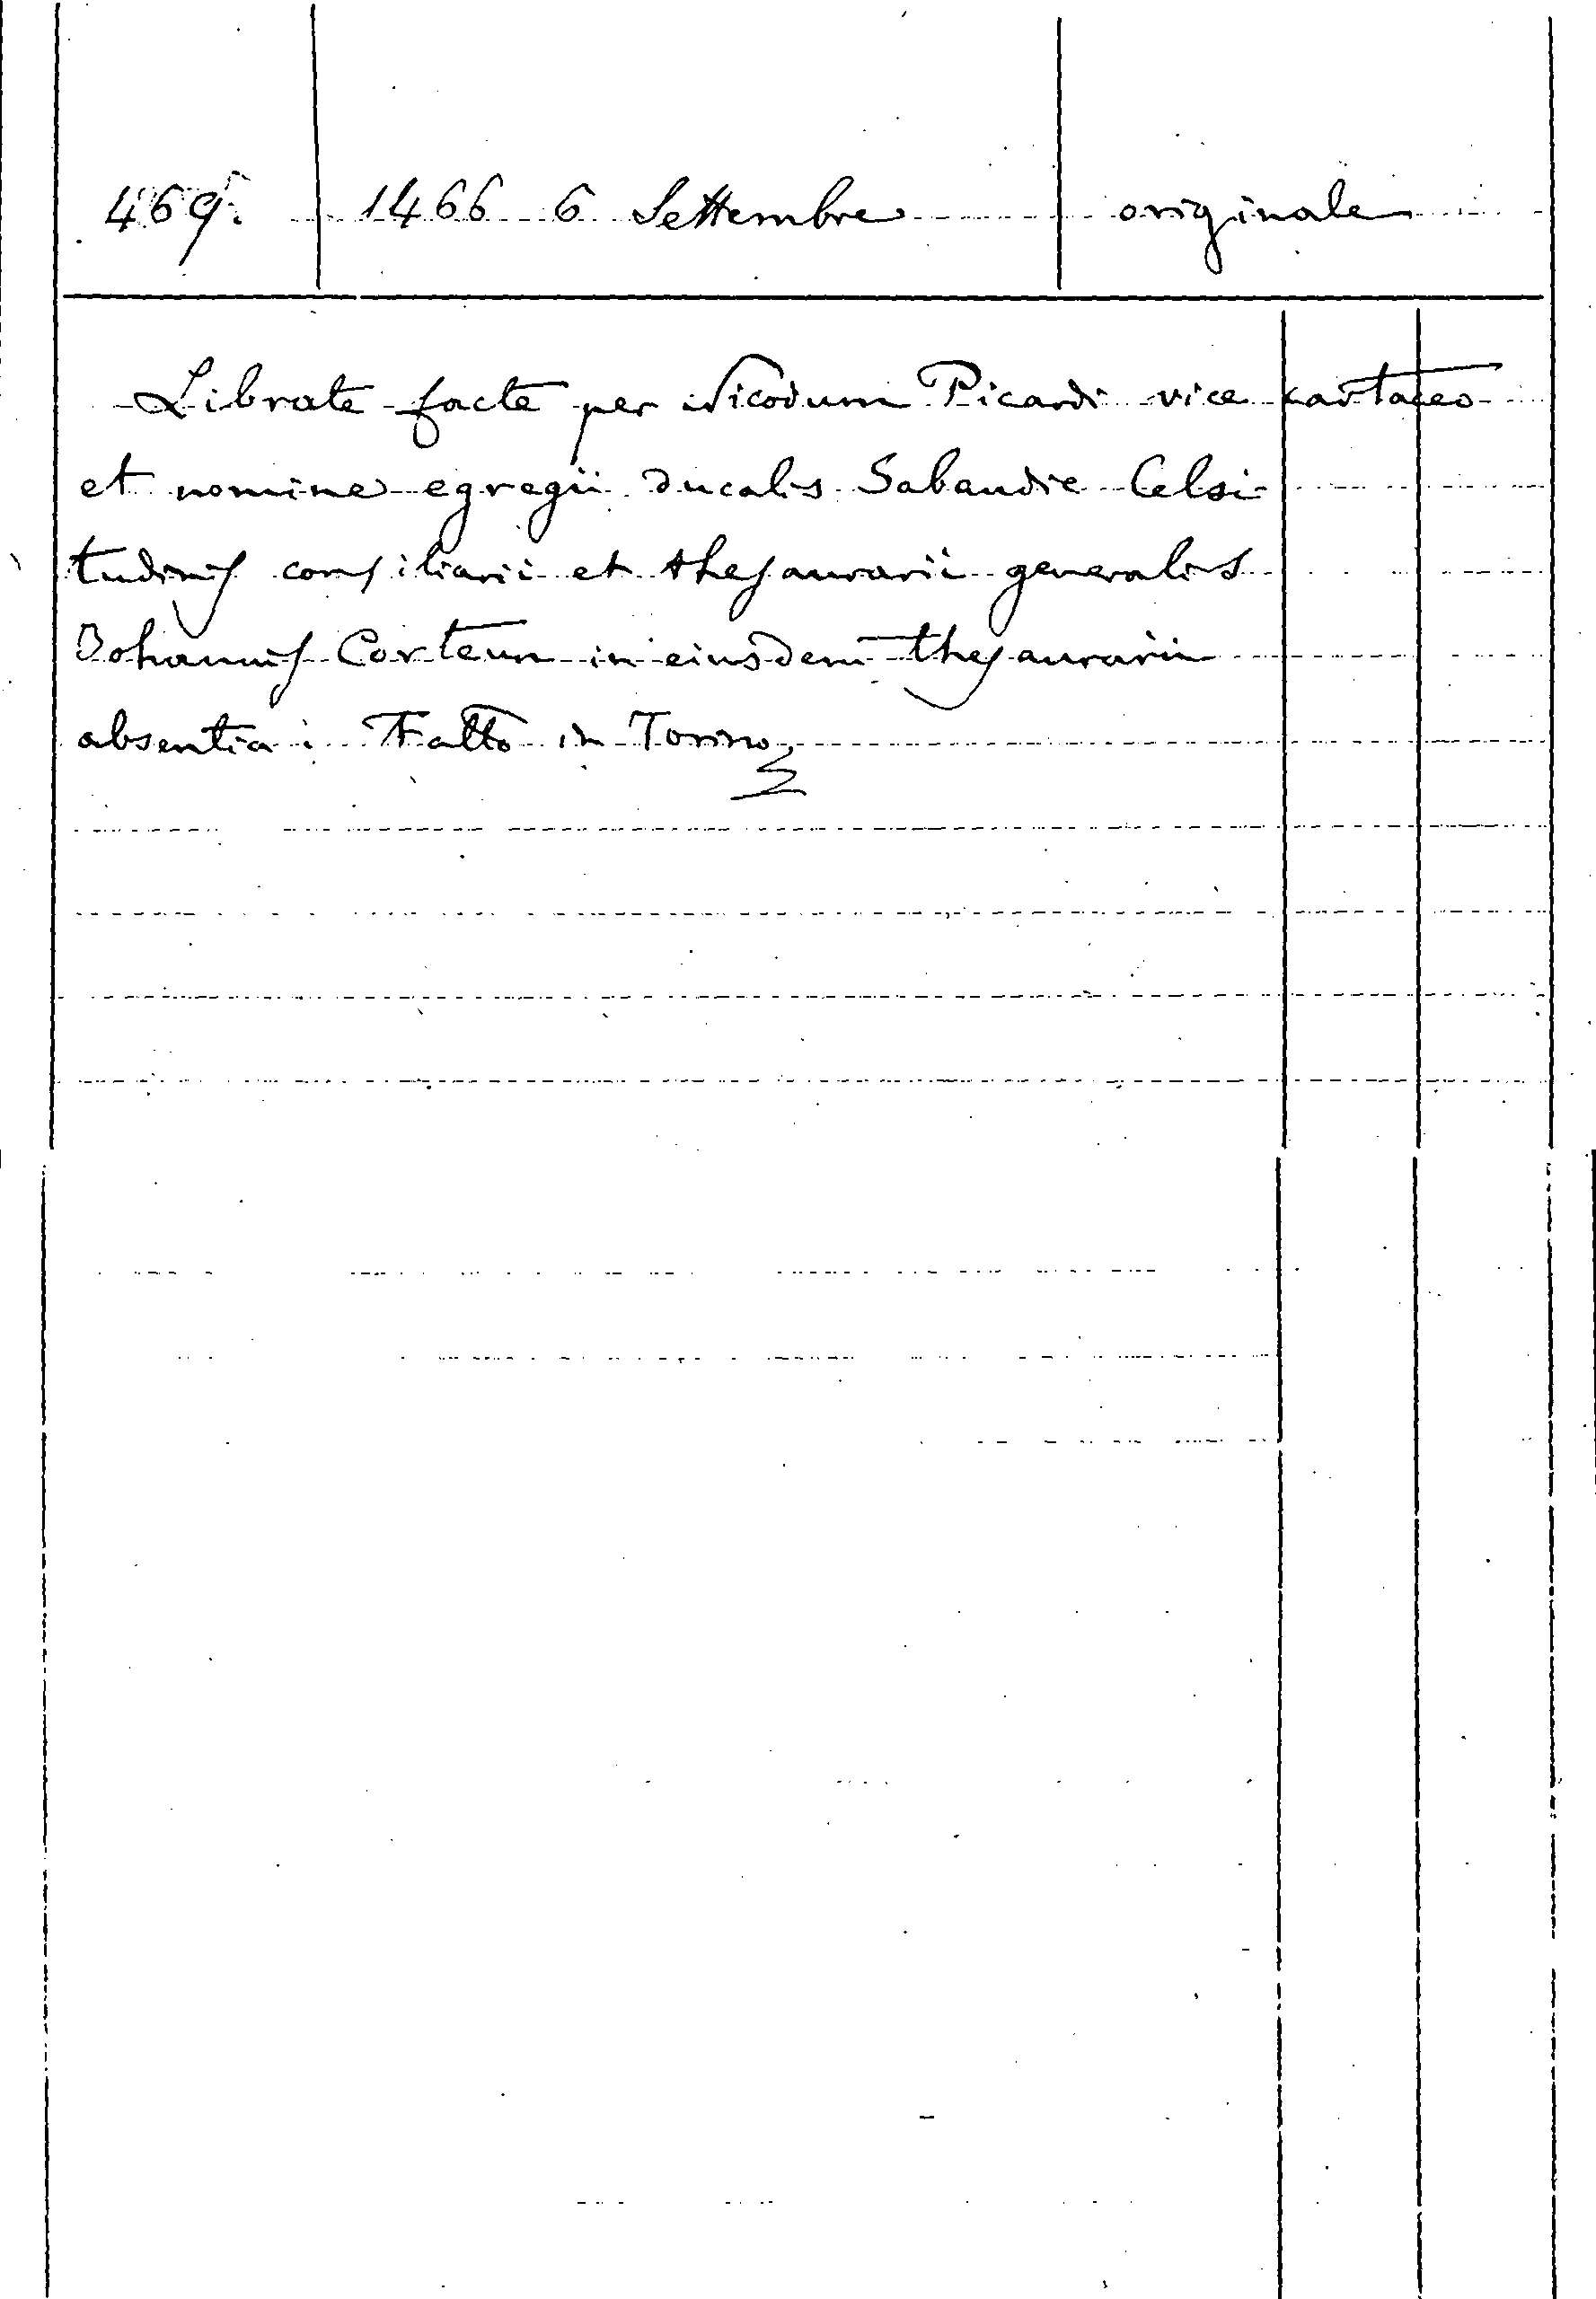 469. 1466 6 Settembre originale
Librate facte per Nicodum Picardi vice cartaceo
et nomine egregii ducalis Sabaudie Celsi
tudinis consiliarii et thesaurarii generalis
Johannis Corteun in eiusdem thesaurarii
absentia. Fatto in Torino